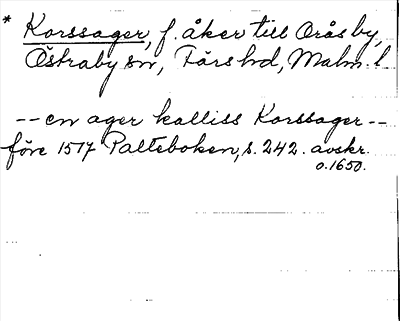 * Korssager, f. åker till Oråsby,
Östraby sn, Färs hd, Malm. l.
-- en ager kalliss Korssager --
före 1517 Palteboken, s. 242. avskr.
o. 1650.